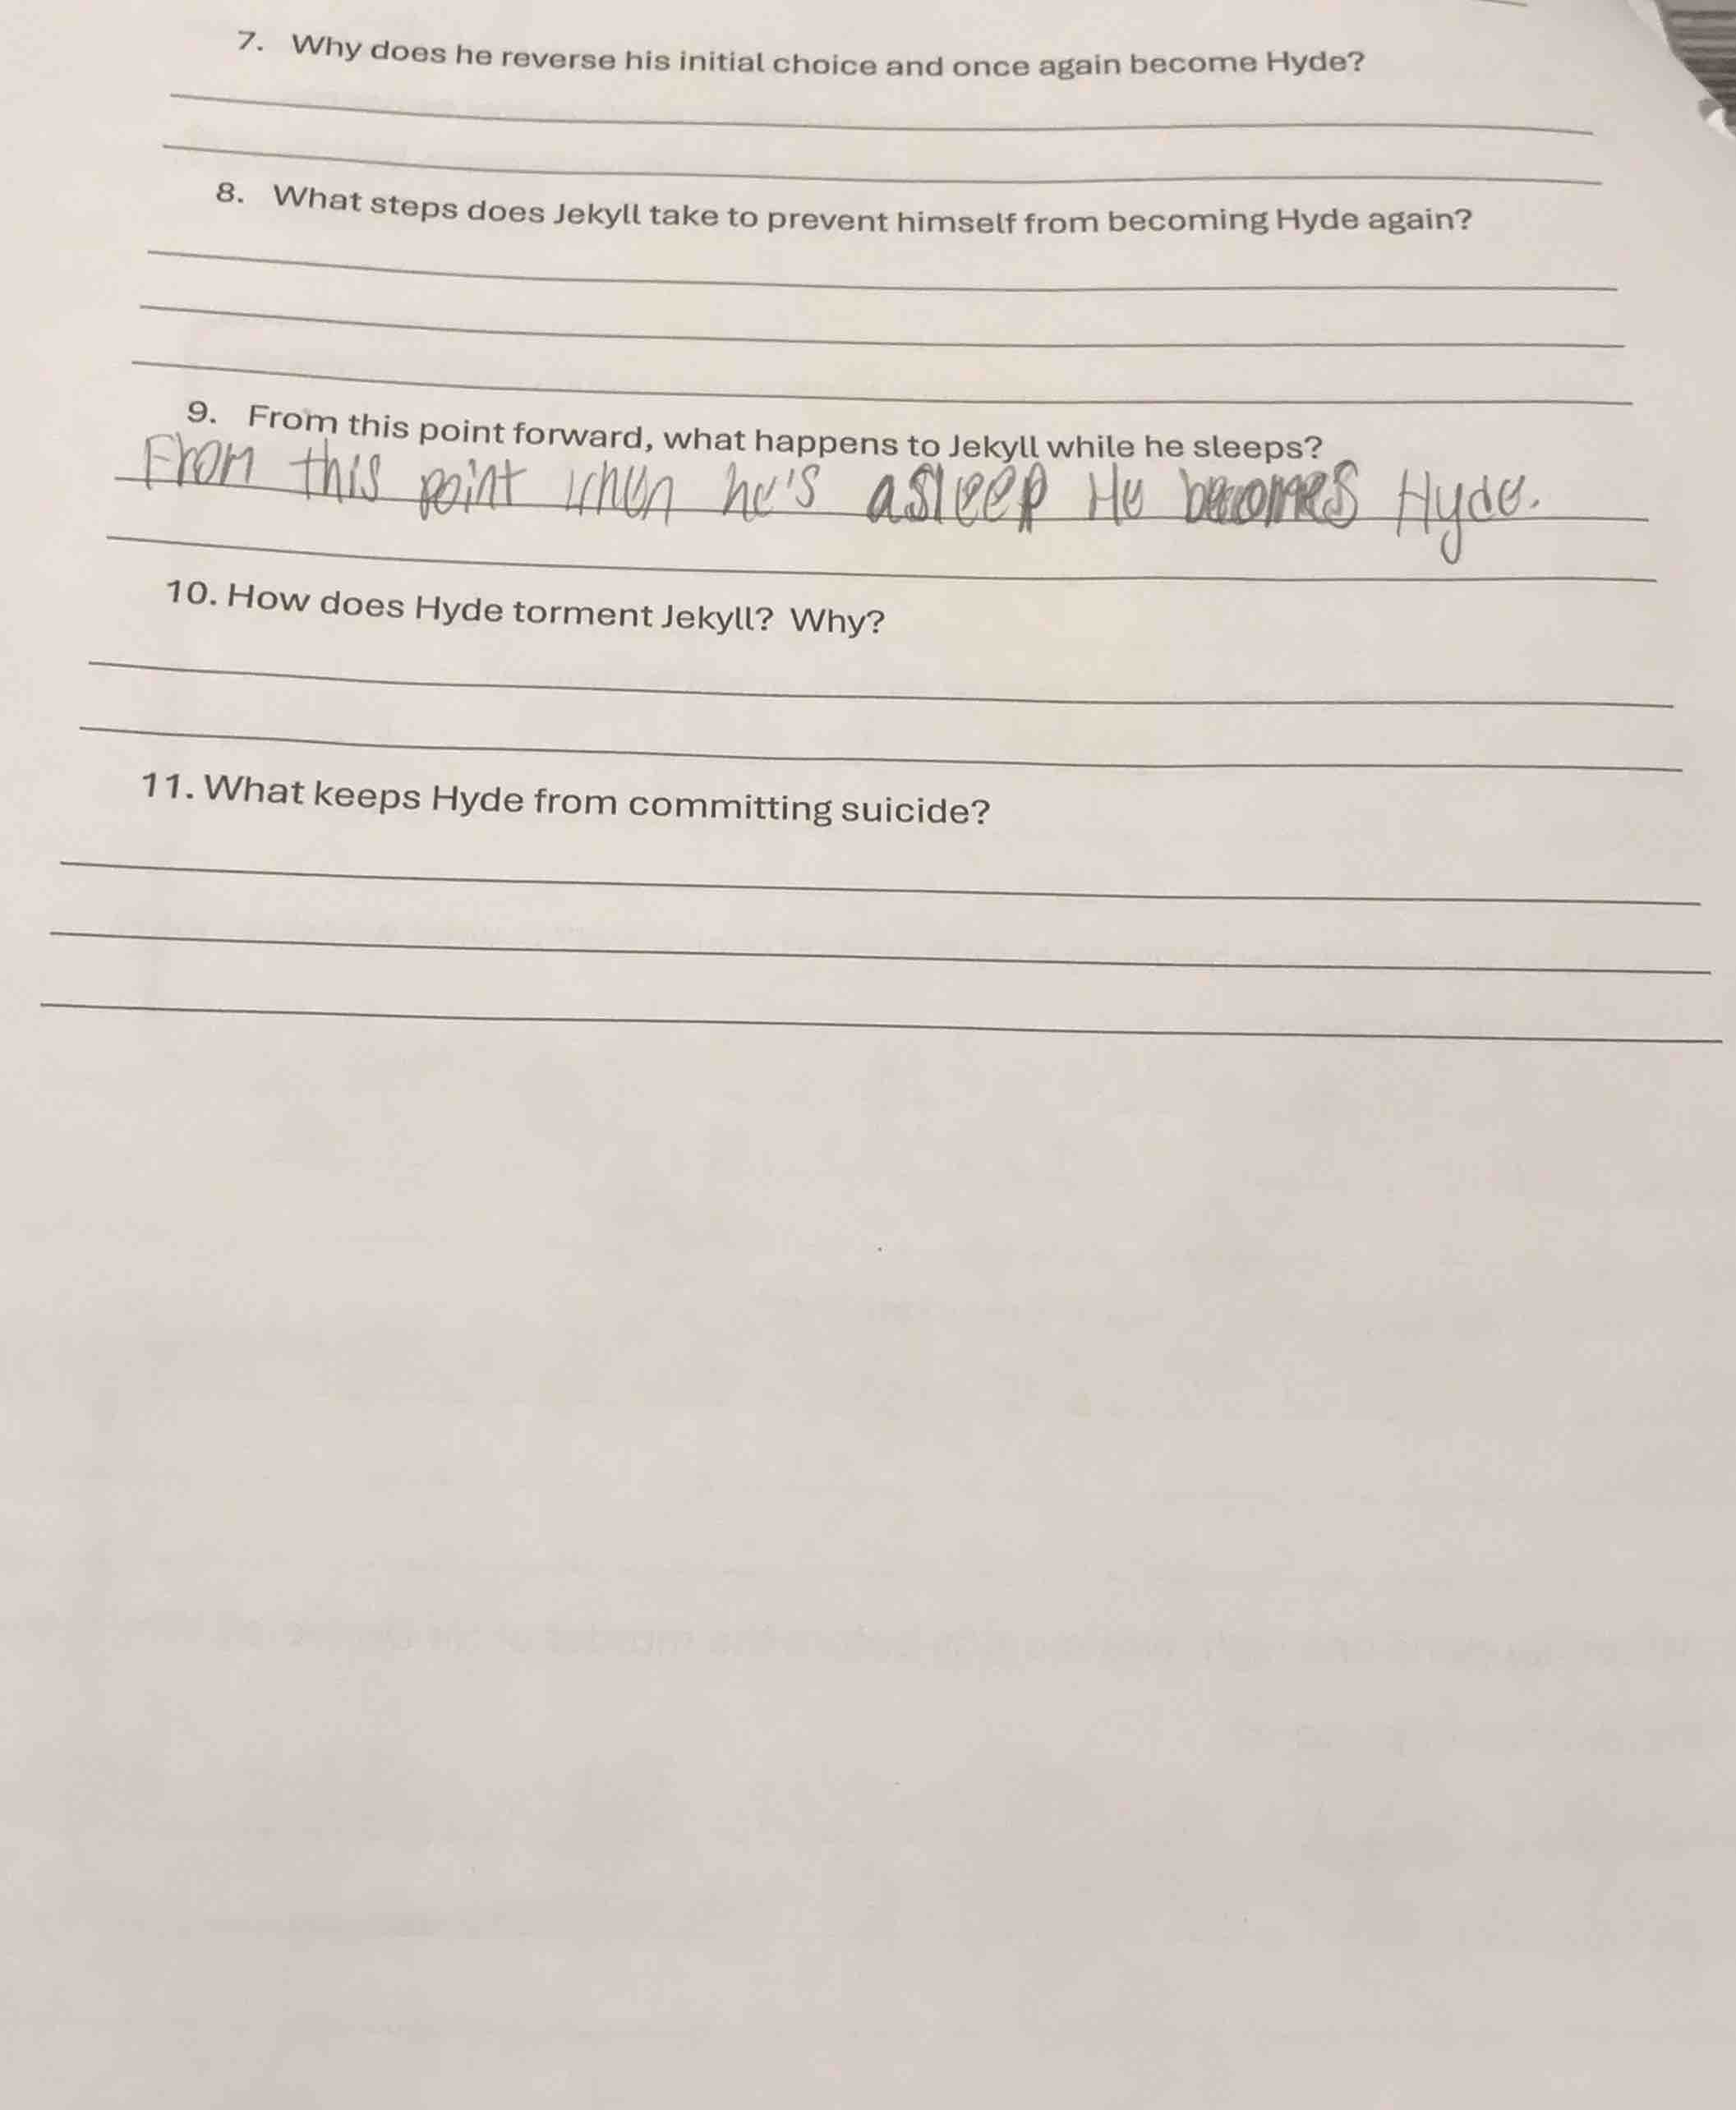 7. Why does he reverse his initial choice and once again become Hyde?
8. What steps does Jekyll take to prevent himself from becoming Hyde again?
9. From this point forward, what happens to Jekyll while he sleeps?
From this point when he's asleep He becomes Hyde.
10. How does Hyde torment Jekyll? Why?
11. What keeps Hyde from committing suicide?